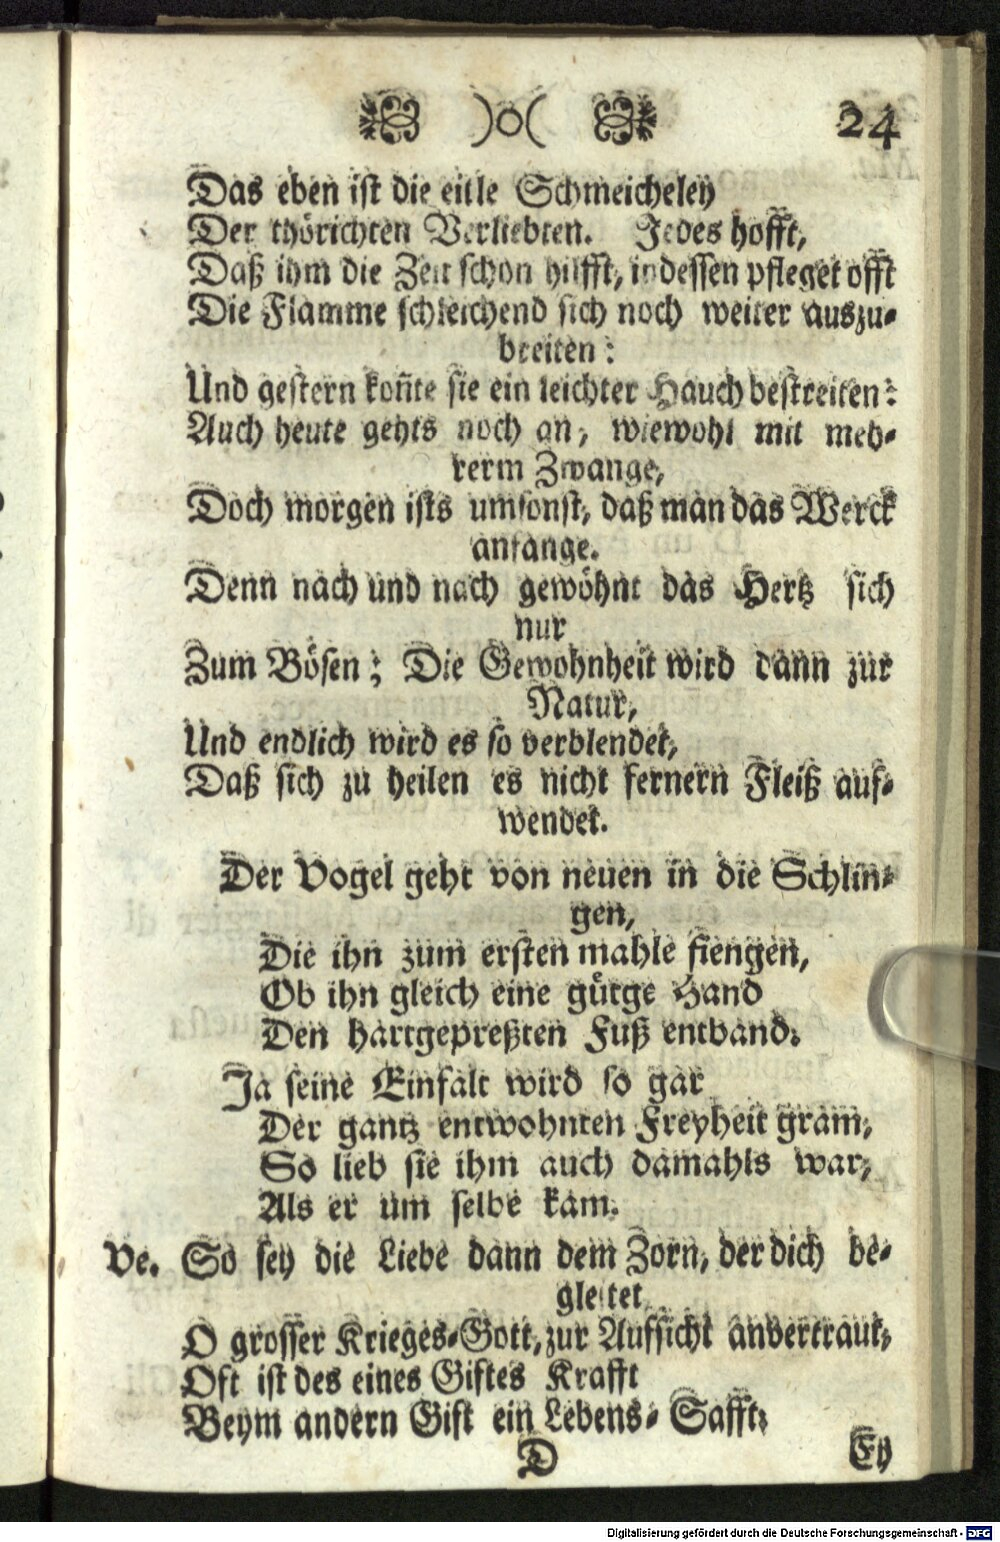 )o( 24
Das eben ist die eitle Schmeicheley
Der thörichten Verliebten. Jedes hofft,
Daß ihm die Zeit schon hilfft, indessen pfleget offt
Die Flamme schleichend sich noch weiter auszu-
breiten:
Und gestern kon̄te sie ein leichter Hauch bestreiten:
Auch heute gehts noch an, wiewohl mit meh-
rerm Zwange,
Doch morgen ists umsonst, daß man das Werck
anfange.
Denn nach und nach gewöhnt das Hertz sich
nur
Zum Bösen; Die Gewohnheit wird dann zur
Natur,
Und endlich wird es so verblendet,
Daß sich zu heilen es nicht fernern Fleiß auf-
wendet.
Der Vogel geht von neuen in die Schlin-
gen,
Die ihn zum ersten mahle fiengen,
Ob ihn gleich eine gütge Hand
Den hartgepreßten Fuß entband.
Ja seine Einfalt wird so gar
Der gantz entwohnten Freyheit gram,
So lieb sie ihm auch damahls war,
Als er um selbe kam.
Ve. So sey die Liebe dann dem Zorn, der dich be-
gleitet
O grosser Krieges-Gott, zur Aufsicht anvertraut,
Oft ist des eines Giftes Krafft
Beym andern Gift ein Lebens-Safft;
D Ey
Digitalisierung gefördert durch die Deutsche Forschungsgemeinschaft - DFG